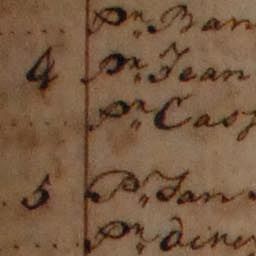 Pr. Ban
4 Pr. Jean
Pr. Casp
5 Pr. Jan
Pr. dire